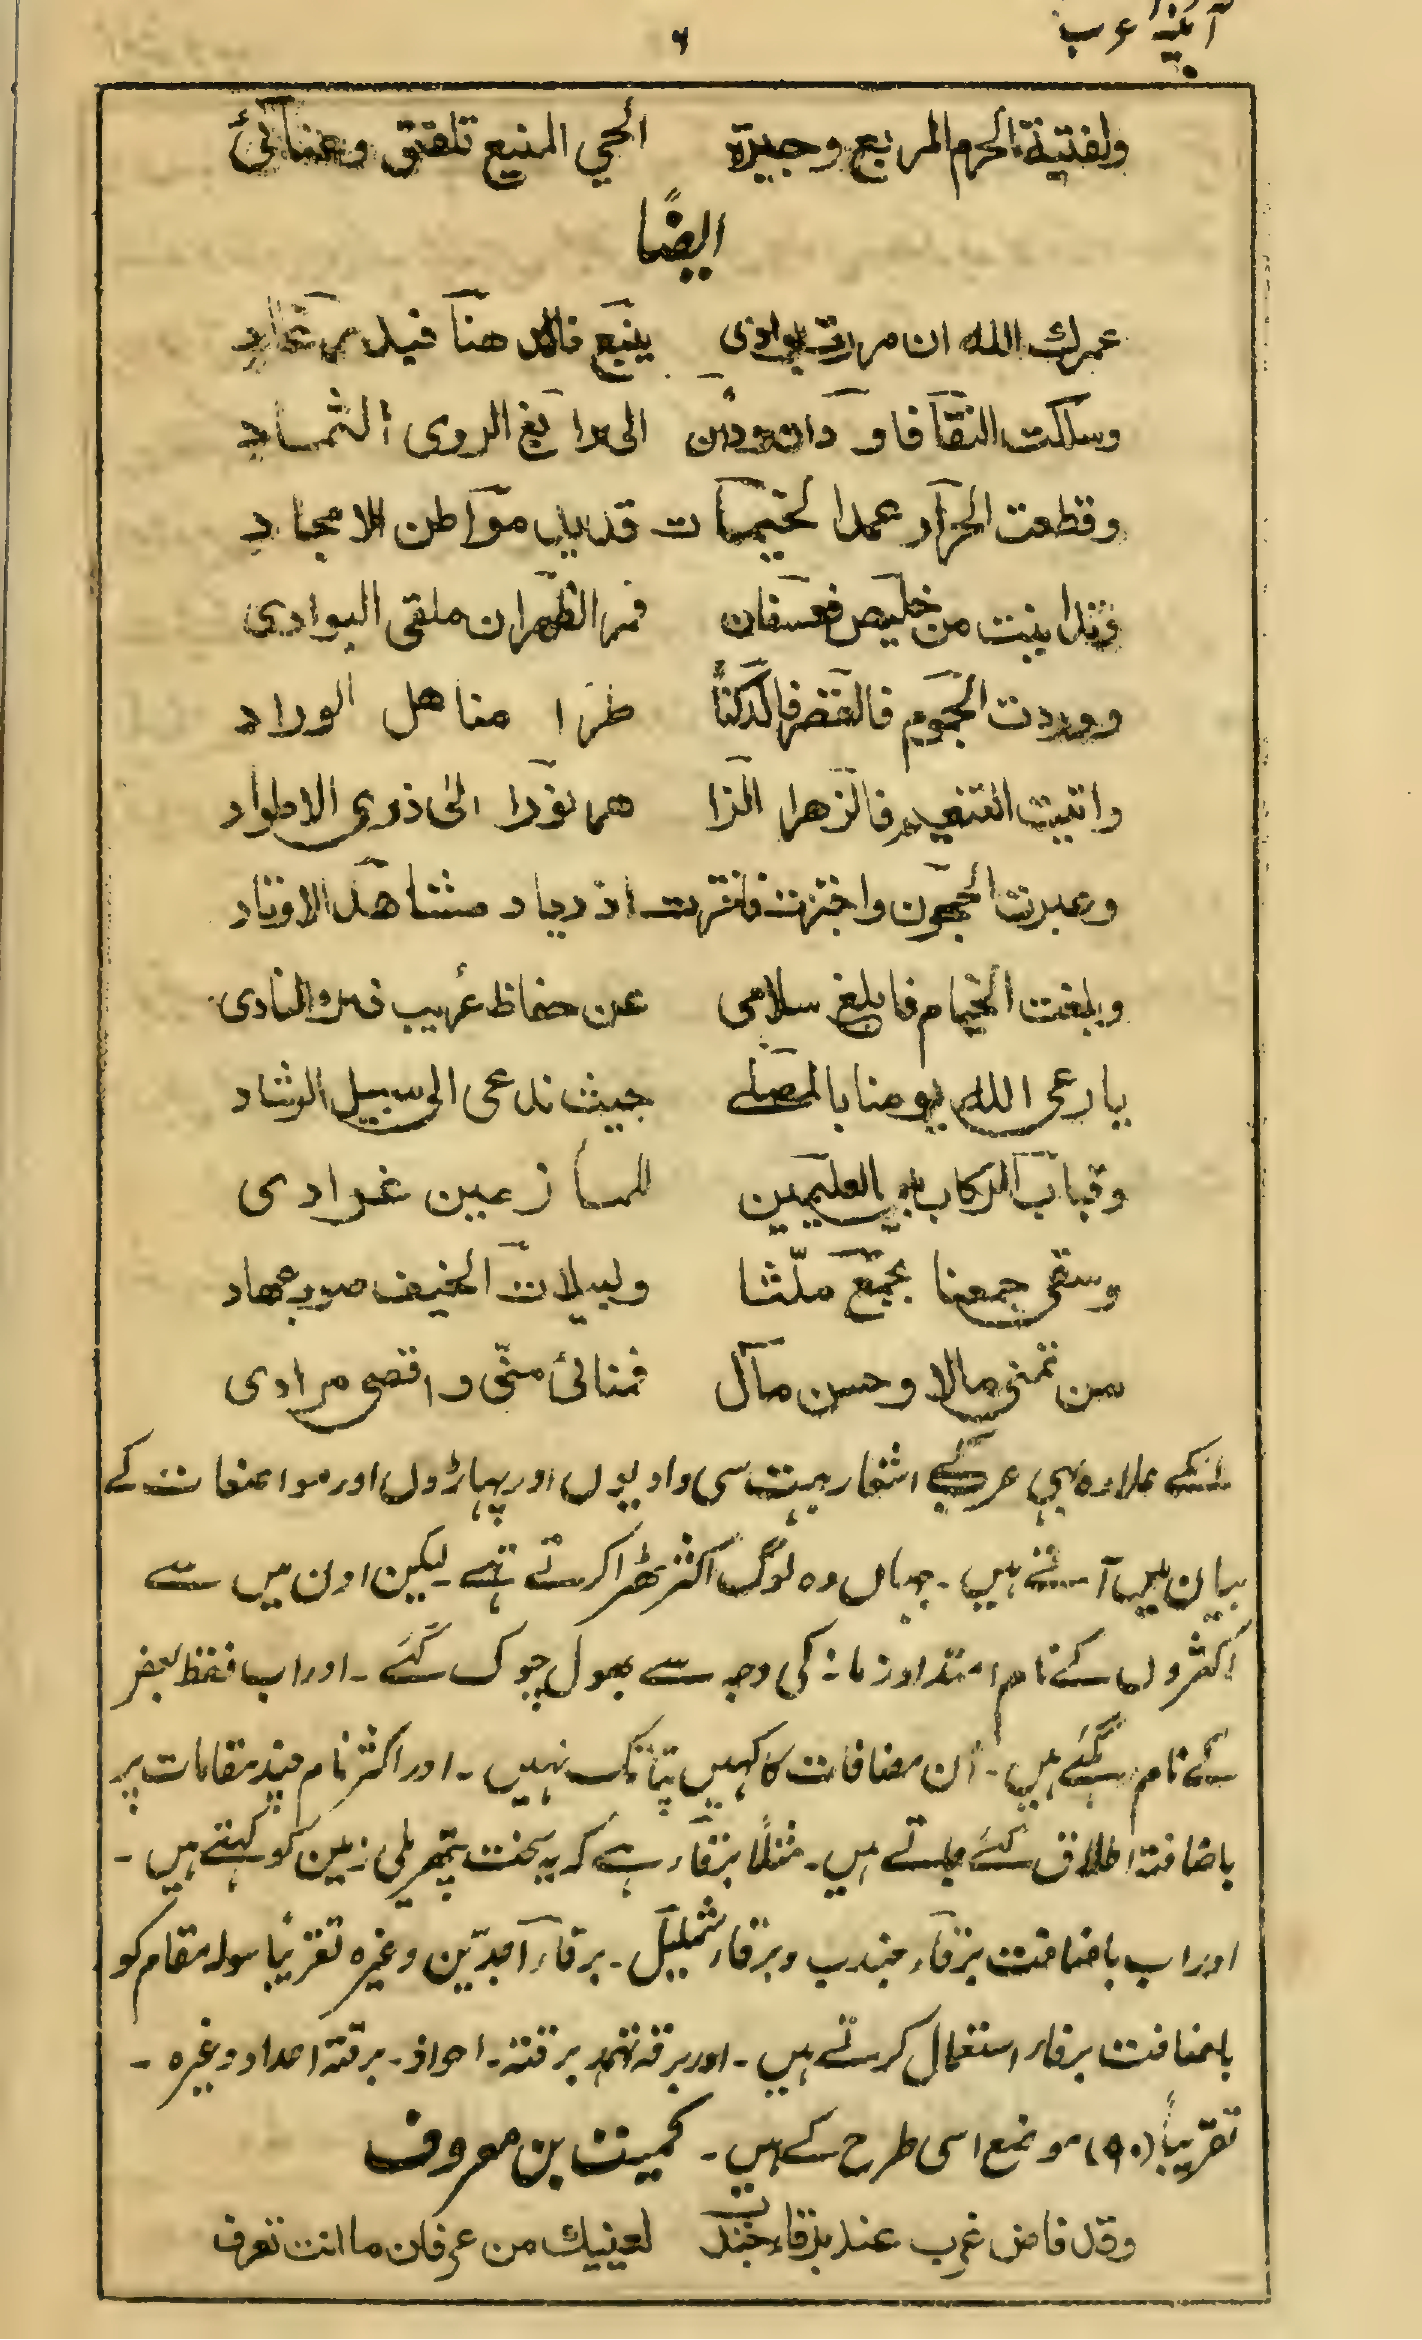 آئینۂ عرب
۶
ولفتية الحرم المريع وجيرة الحي المنيع تلفتى وعنائى
ايضًا
عمرك الله ان مررت بوادى ينبع فالدهنا فبدر غاد
وسلكت النقا فاودان ودان الى رابغ الروى الثماد
وقطعت الحرار عمدا لخيمات قديد مواطن الامجاد
وتدانيت من خليص فعسفان فمر الظهران ملقى البوادى
ووردت الجموم فالقصر فالدكناً طرًا مناهل الوراد
واتيت التنعيم فالزهرا الزا هر نورا الى ذرى الاطواد
وعبرت الحجون واجتزت فاخترت ازدياد مشاهد الاوتاد
وبلغت الخيام فابلغ سلامى عن حفاظ عريب ذاك النادى
يارعى الله يومنا بالمصلے حيث ندعى الى سبيل الرشاد
وقباب الركاب بين العليمين للمازمين غوادى
وسقى جمعنا بجمع ملّثا ولييلات الخيف صوب عهاد
من تمنى مالا وحسن مآل فمنائ منّى واقصى مرادى
انکے علاوہ بہی عرب کے اشعار بہت سی وادیوں اور پہاڑوں اور مواضعات کے
بیان میں آتے ہیں ۔ جہاں وہ لوگ اکثر ٹھرا کرتے تہے لیکن اون میں سے
اکثروں کے نام امتداد زمانہ کی وجہ سے بھول چوک گئے ۔ اور اب فقط بعض
کے نام رہگئے ہیں ۔ اُن مضافات کا کہیں پتا تک نہیں ۔ اور اکثر نام چند مقامات پر
باضافتہ اطلاق کئے جاتے ہیں ۔ مثلًا برقآء ہے کہ یہ سخت پتھریلی زمین کو کہتے ہیں ۔
اور اب باضافت برقآء جندب وبرقاء شملیل ۔ برقآء آجدّین وغیرہ تقریبًا سولہ مقام کو
باضافت برقاء استعمال کرتے ہیں ۔ اور برقہ ثہمد برقتہ ۔ اجواذ ۔ برقتہ اجداد وغیرہ ۔
تقریباً (۹۰) موضع اسی طرح کے ہیں ۔ کمیت بن معروف
وقد فاض غرب عند برقاء جندب لعينيك من عرفان ما انت تعرف